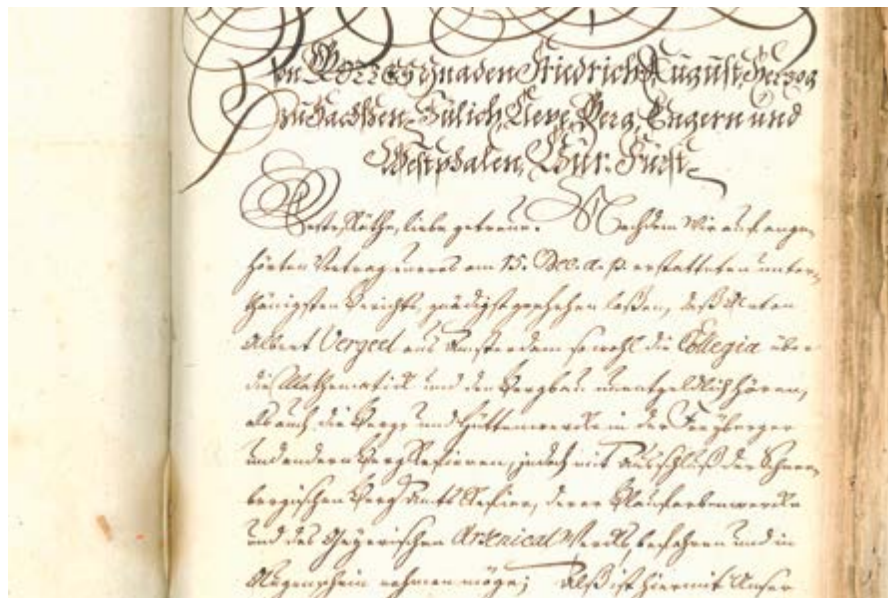 Von GOTTES Gnaden Friedrich August, Herzog
zu Sachsen, Jülich, Cleve, Berg, Engern und
Westphalen, Chur-Fürst.
Veste, Räthe, liebe getreue. Nachdem Wir auf ange-
hörten Vortrag eueres am 15. Dec. a. p. erstatteten unter-
thänigsten Berichts, gnädigst geschehen laßen, daß Anton
Albert Vergeel aus Amsterdam sowohl die Collegia über
die Mathematick und den Bergbau unentgeldlich hören,
als auch die Berg- und Hüttenwercke in der Freyberger
und andern BergRefieren, jedoch mit Ausschluß der Schnee-
bergischen BergAmtsRefier, derer Blaufarbenwercke
und des Geyerischen Arsenical Wercks befahren und in
Augenschein nehmen möge; Alß ist hiermit Unser